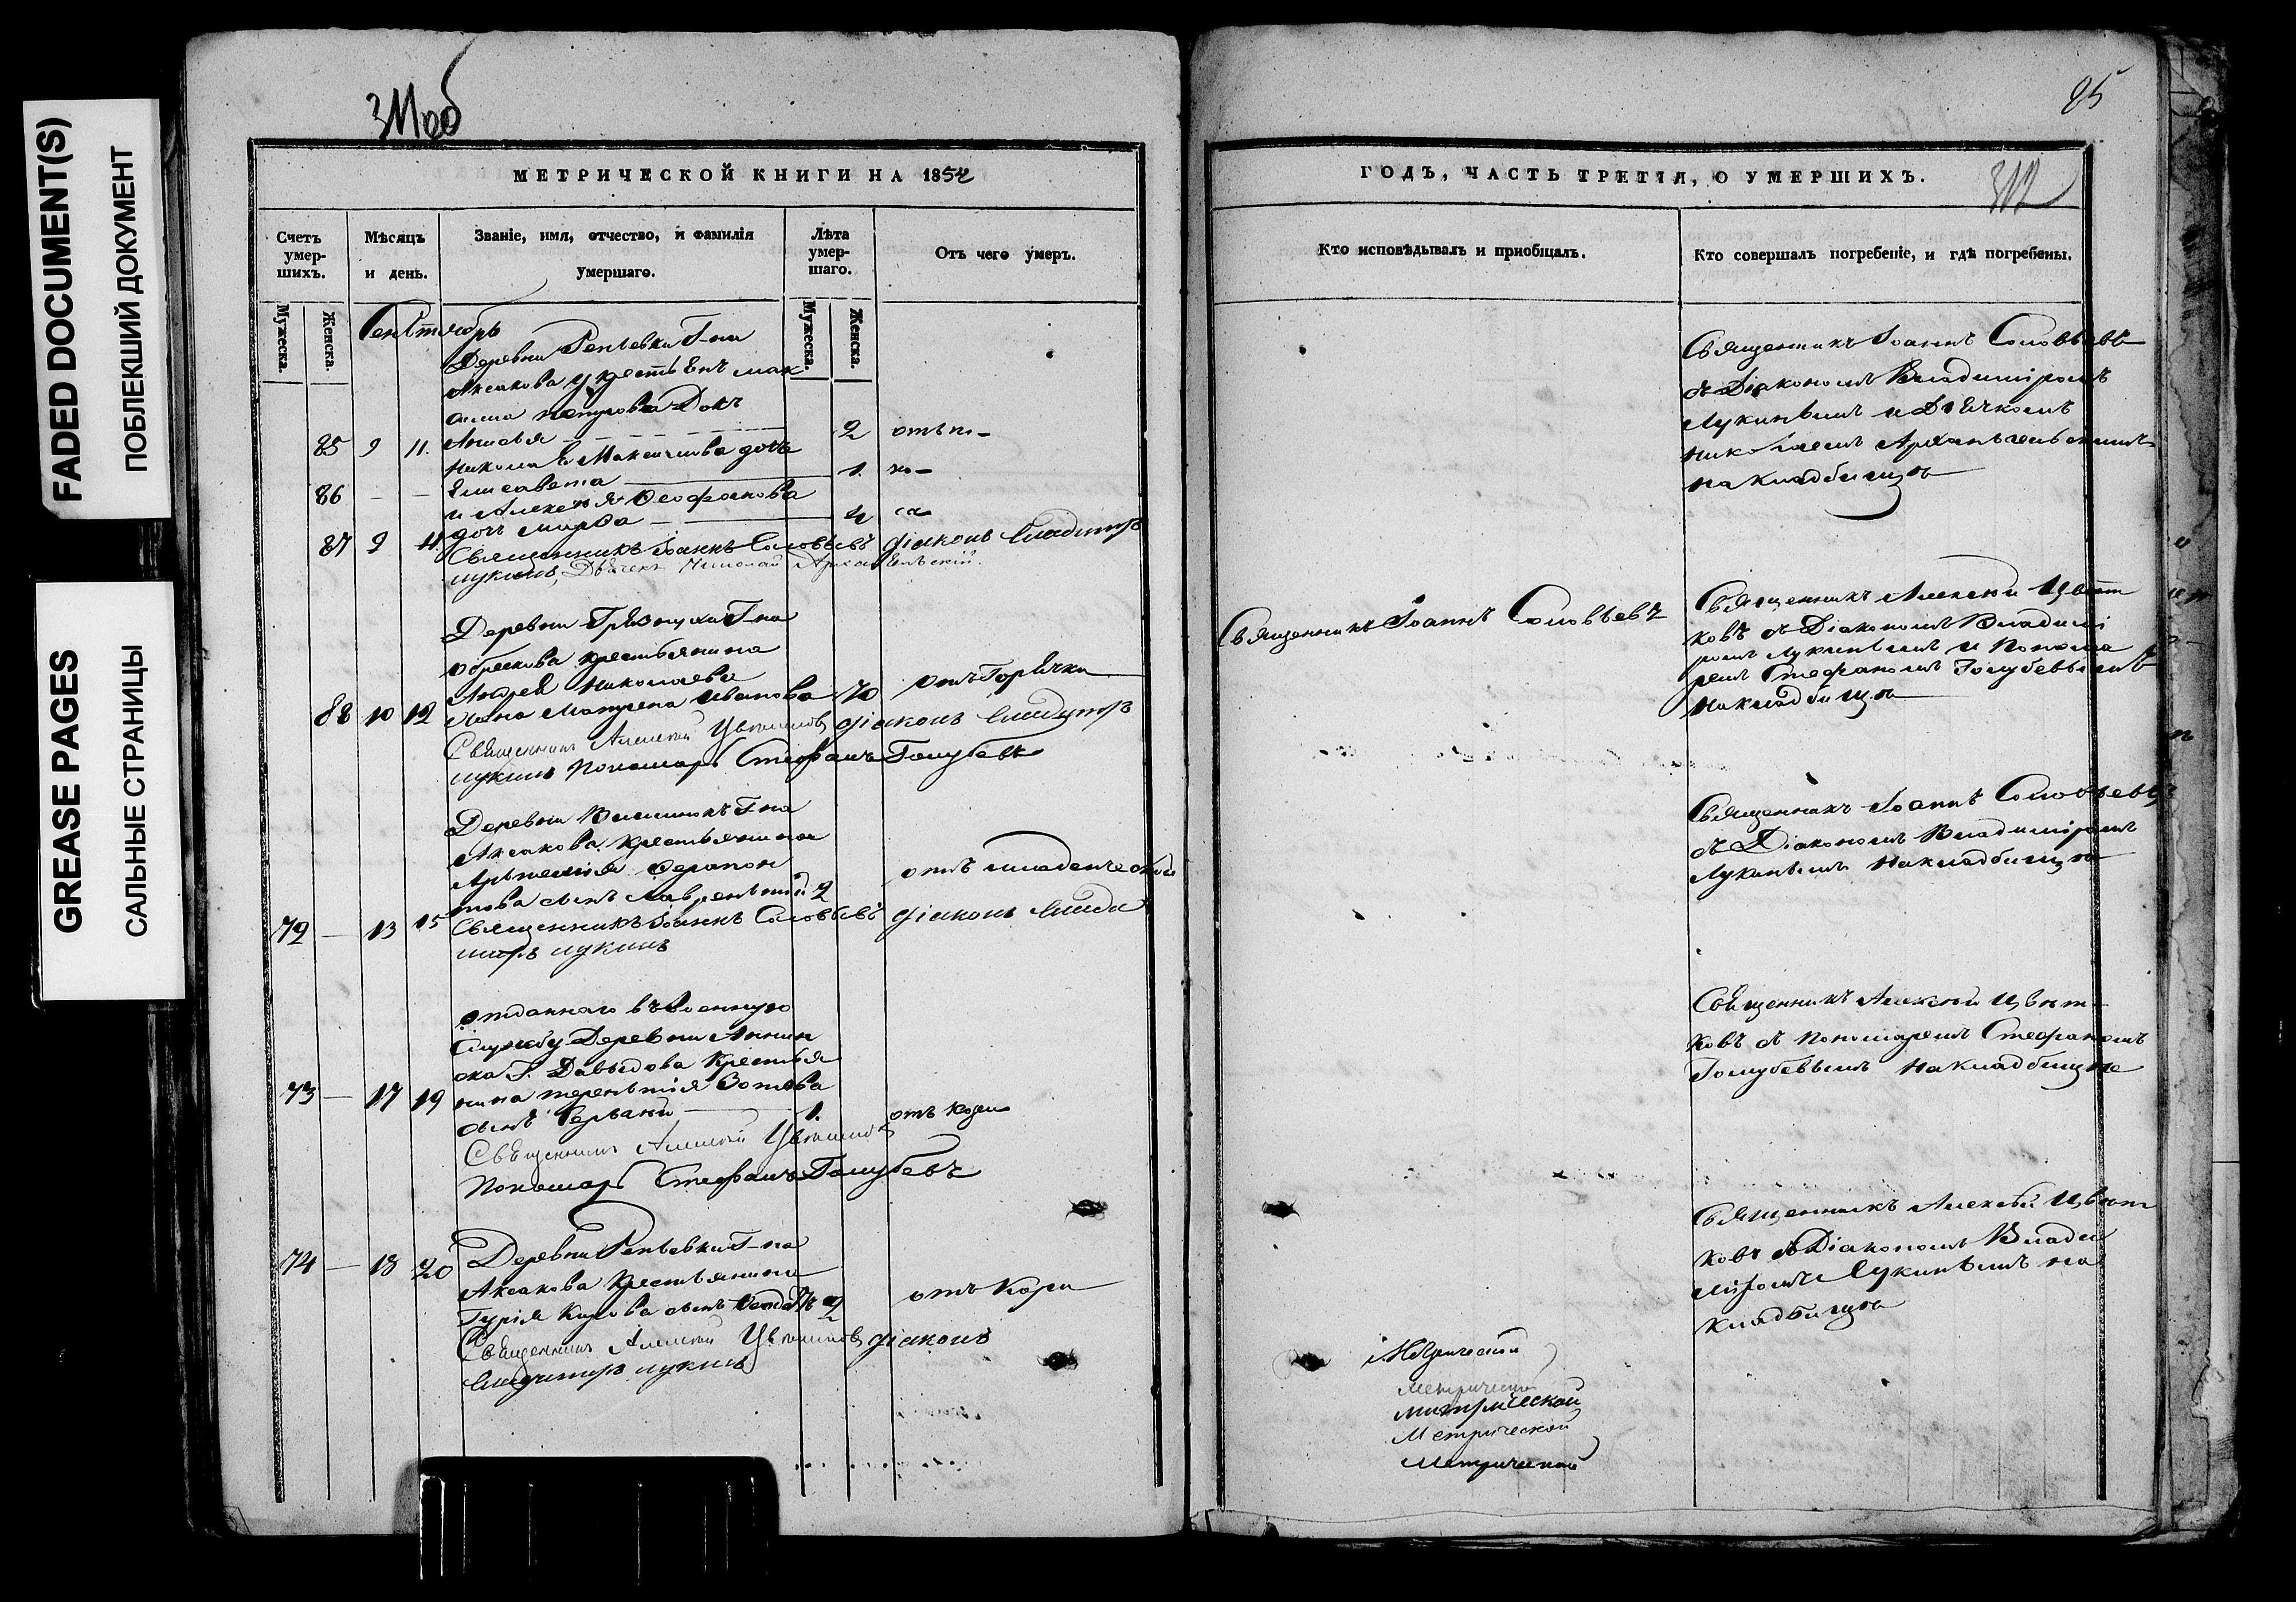 FADED DOCUMENT(S)
ПОБЛЕКШИЙ ДОКУМЕНТ
GREASE PAGES
САЛЬНЫЕ СТРАНИЦЫ
311об
МЕТРИЧЕСКОЙ КНИГИ НА 1854
Счетъ умер-шихъ.
Мужеска.
Женска.
Мѣсяцъ и день.
Званіе, имя, отчество, и фамилія умершаго.
Лѣта умер-шаго.
Мужеска.
Женска.
Отъ чего умеръ.
Сентябрь
Деревни Репьевки Г-на
Аксакова у крестьянъ Мак
сима Дочь
85 9 11. 2
Николая Максимова дочь
86 — — Елисавета 1.
и Алексѣя Феофанова
87 9 11. дочь Марѳа
Священникъ Іоаннъ Соловьевъ діаконъ Владимiръ
Лукинъ, Дьячекъ Николай Архангельскій.
Деревни Грязнухи Г-на
Обрескова крестьянина
Андрея Николаева
88 10 12 жена Матрена Иванова 70 отъ Горячки
Священникъ Алексѣй Цвѣтковъ діаконъ Владимiръ
Лукинъ Пономарь Стефанъ Голубевъ
Деревни Г-на
Аксакова крестьянина
Арѳемія Ферапон
това сынъ Лаврентій 2 отъ младенческой
72 — 13 15 Священникъ Іоаннъ Соловьевъ діаконъ Влади
миръ Лукинъ
отданнаго въ Военную
Службу Деревни Аннин
ска Г. Давыдова Крестья
73 — 17 19 нина Терентія Зотова
сынъ 1. отъ кори
Священникъ Алексѣй Цвѣтковъ
Пономарь Стефанъ Голубевъ
74 — 18 20 Деревни Репьевки Г-на
Аксакова Крестьянина
Гурія сынъ 2 отъ Кори
Священникъ Алексѣй Цвѣтковъ діаконъ
Владимiръ Лукинъ
85
ГОДЪ, ЧАСТЬ ТРЕТІЯ, О УМЕРШИХЪ.
312
Кто исповѣдывалъ и приобщалъ.
Кто совершалъ погребеніе, и гдѣ погребены.
Священникъ Іоаннъ Соловьевъ
съ Діакономъ Владиміромъ
Лукинымъ и Дьячкомъ
Николаемъ Архангельскимъ
на кладбищѣ
Священникъ Іоаннъ Соловьевъ
Священникъ Алексѣй Цвѣт
ковъ съ Діакономъ Владимі
ромъ Лукинымъ и Понома
ремъ Стефаномъ Голубевымъ
на кладбищѣ
Священникъ Іоаннъ Соловьевъ
съ Діакономъ Владиміромъ
Лукинымъ на кладбищѣ
Священникъ Алексѣй Цвѣт-
ковъ съ Пономаремъ Стефаномъ
Голубевымъ на кладбищѣ
Священникъ Алексѣй Цвѣт
ковъ съ Діакономъ Влади
міромъ Лукинымъ на
кладбищѣ
Метрической
Метрической
Метрической
Метрической
Метрической